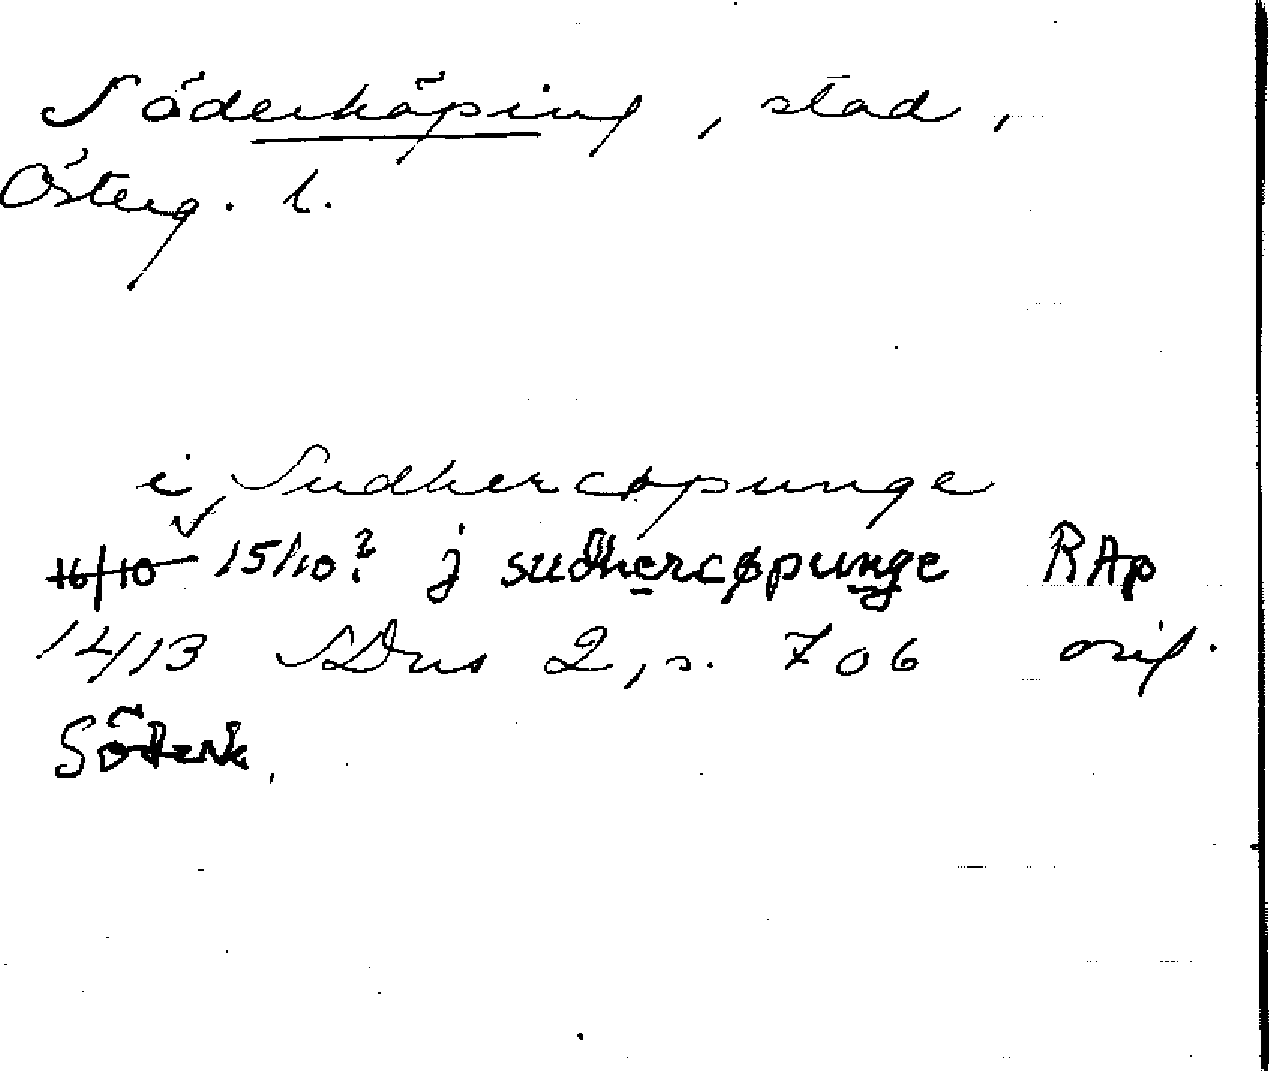 Söderköping, stad,
Österg. l.
i Sudhercøpunge
16/10 15/10? j sudhercøpunge RAp
1413 SDns 2, s. 706 orig.
Söderk.